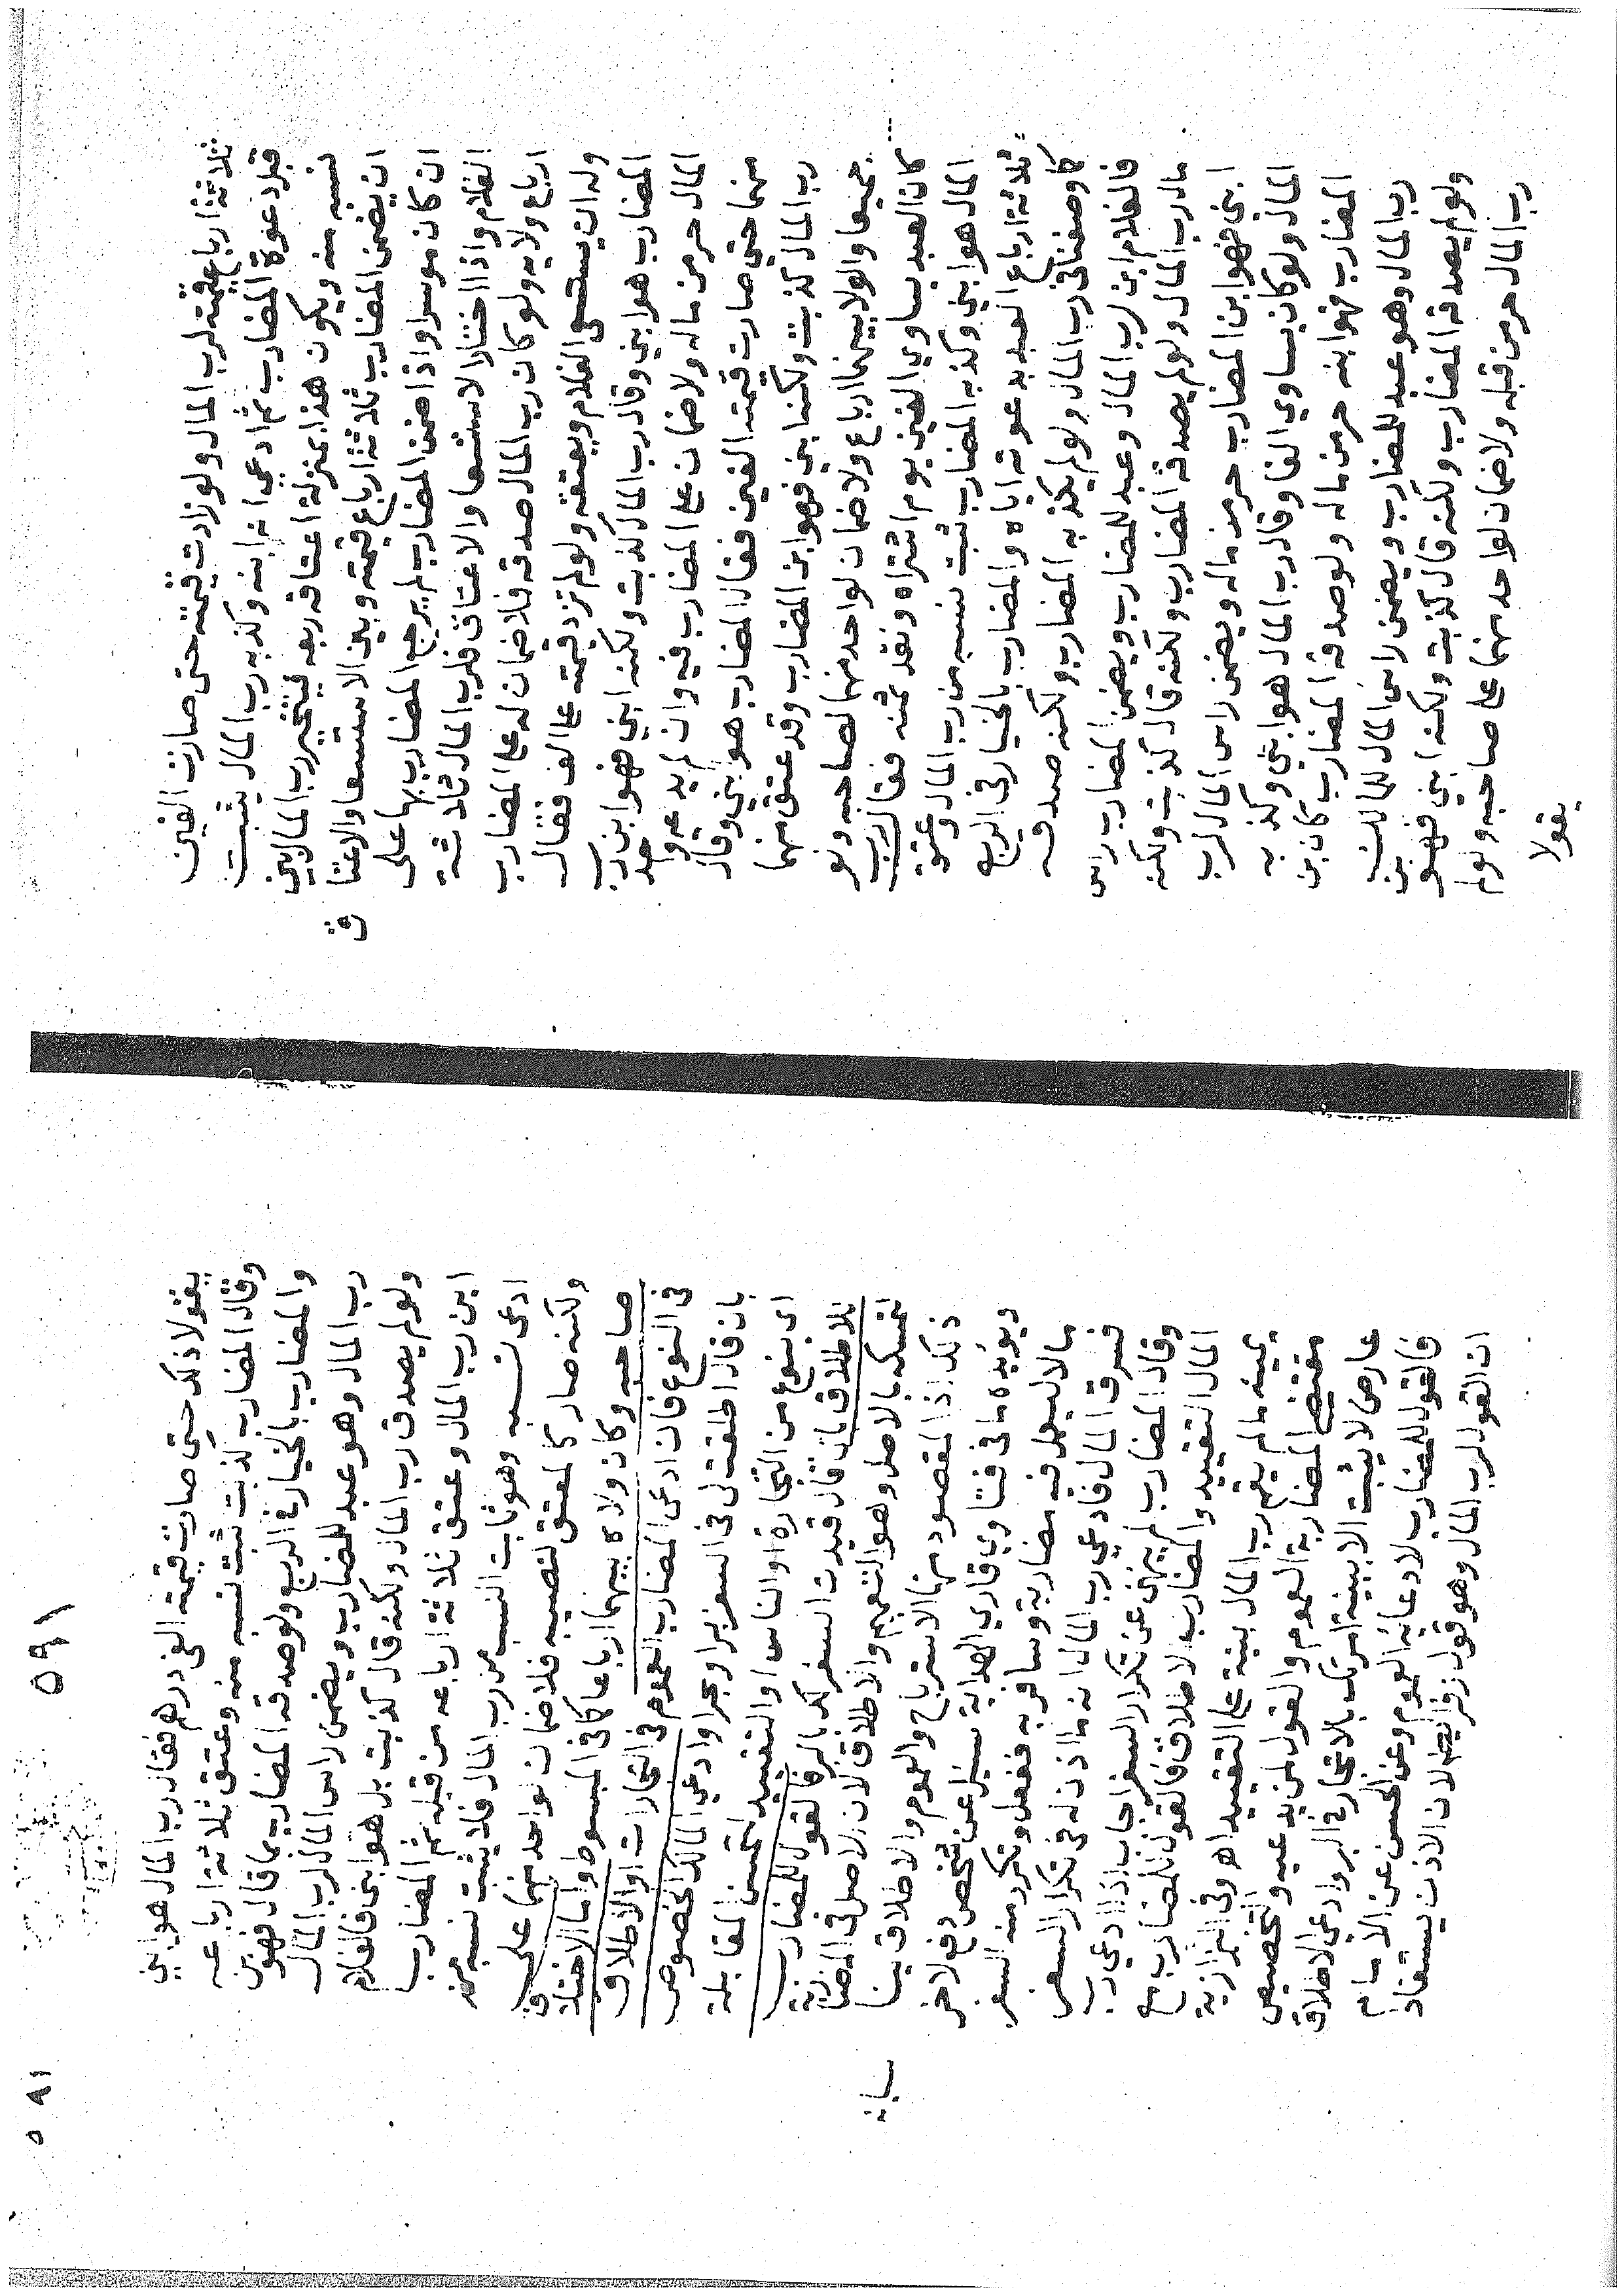 ثلاثة ارباع قيمته لرب المال ولو زادت قيمته حتى صارت الفين
قبل دعوة المضارب ثم ادعى انه ابنه وكذبه رب المال يثبت
نسبه منه ويكون هذا بمنزلة اعتاقه ربعه فيتخير رب المال بين
ان يضمن المضارب ثلاثة ارباع قيمته وبين الاستسعا والاعتا
ق
ان كان موسرا واذا ضمن المضارب لم يرجع المضارب بها على
الغلام واذا اختار الاستسعا والاعتاق فلرب المال ثلاثة
ارباع ولايه ولو كان رب المال صدقه فلا ضمان له على المضارب
وله ان يستسعى الغلام ويعتقه ولو لم تزد قيمته على الف فقال
المضارب هو ابني وقال رب المال كذبت ولكنه ابني فهو ابن رب
المال حر من ماله ولا ضمان على المضارب فيه وان لم يدعه واحد
منهما حتى صارت قيمته الفين فقال المضارب هو ابني وقال
رب المال كذبت ولكنه ابني فهو ابن المضارب وقد عتق منهما
جميعا والولا بينهما ارباع ولا ضمان لواحد منهما لصاحبه ولو
كان العبد يساوي الفين يوم اشتراه ونقد ثمنه فقال رب
المال هو ابني وكذبه المضارب ثبت نسبه من رب المال وعتق
ثلاثة ارباع العبد بدعوته اياه والمضارب بالخيار في الربع
كما وصفنا في رب المال ولو لم يكذبه المضارب ولكنه صدقه
فالغلام ابن لرب المال وعبد للمضارب ويضمن المضارب راس
مال رب المال ولو لم يصدقه المضارب ولكنه قال كذبت ولكنه
ابني فهو ابن المضارب حر من ماله ويضمن راس المال لرب
المال ولو كان يساوي الفا وقال رب المال هو ابني وكذبه
المضارب فهو ابنه حر من ماله ولو صدقه المضارب كان ابن
رب المال وهو عبد للمضارب ويضمن راس المال للمالك
ولو لم يصدقه المضارب ولكنه قال كذبت ولكنه ابني فهو ابن
رب المال حر من قبله ولا ضمان لواحد منهما على صاحبه ولو لم
يقولا
١٩٥
١٩٥
يقولا ذلك حتى صارت قيمته الفي درهم فقال رب المال هو ابني
وقال المضارب كذبت ثبت نسبه منه وعتق ثلاثة ارباعه
والمضارب بالخيار في الربع ولو صدقه المضارب بما قال فهو ابن
رب المال وهو عبد للمضارب ويضمن راس المال لرب المال
ولو لم يصدق رب المال ولكنه قال كذبت بل هو ابني فالغلام
ابن رب المال وعتق ثلاثة ارباعه من قبله ثم المضارب
ادعى نسبه وهو ثابت النسب من رب المال فلا يثبت نسبه منه
ولكنه صار كالمعتق لنصيبه فلا ضمان لواحد منهما على
صاحبه وكان ولاه بينهما ارباعا كما في المبسوط واما الاختلاف
في النوع فان ادعى المضارب العموم في التجارات او الاطلاق
بان قال اطلقت لي في السفر برا وبحرا وادعى المالك الخصوص
اى بنوع من التجارة او الناس او التقييد المقابلة
للاطلاق بان قال قيدت السفر كذا بالبر فالقول للمضارب
لتمسكه بالاصل وهو التعميم والاطلاق لان الاصل في المضاربة
ذلك اذ المقصود منها الاسترباح والعموم والاطلاق يناسبانه
ويؤيده ما في فتاوي قاري الهداية سئل عن شخص دفع لاخر
مالا ليعمل فيه مضاربة وسافر به ففعل وتكرر منه السفر
فسرق المال فادعى رب المال انه ما اذن له في تكرار السفر
وقال المضارب لم ينهني عن تكرار السفر اجاب اذا ادعى رب
المال التقييد والمضارب الاطلاق فالقول للمضارب مع
يمينه ما لم يقم رب المال بينة على التقييد اهـ وفي البزازية
مقتضى المضاربة العموم والقول لمن يدعيه والتخصيص
عارض لا يثبت الا ببينة امرتك بالاتجار في البر وادعى الاطلاق
فالقول للمضارب لادعائه العموم وعن الحسن عن الامام
ان القول لرب المال وهو قول زفر لان الاذن يستفاد